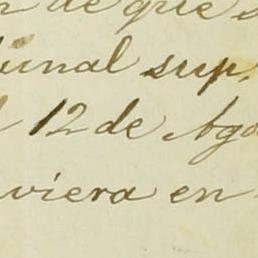 de que
unal sup.
12 de Ago
viera en